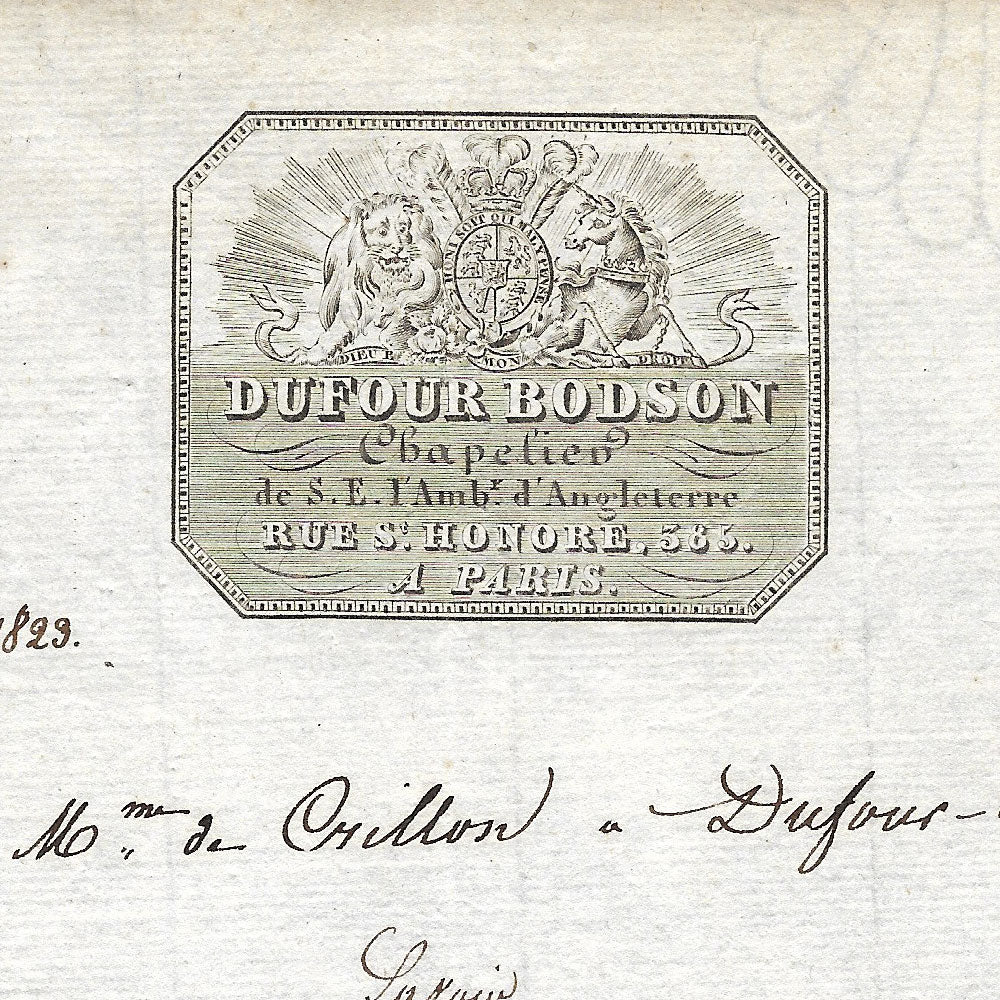 HONI SOIT QUI MAL Y PENSE
DIEU E MON DROIT
DUFOUR BODSON
Chapelier
de S.E. l'Ambr. d'Angleterre
RUE St. HONORE, 365.
A PARIS.
1823.
Mme de Crillon a Dufour-
Savoir